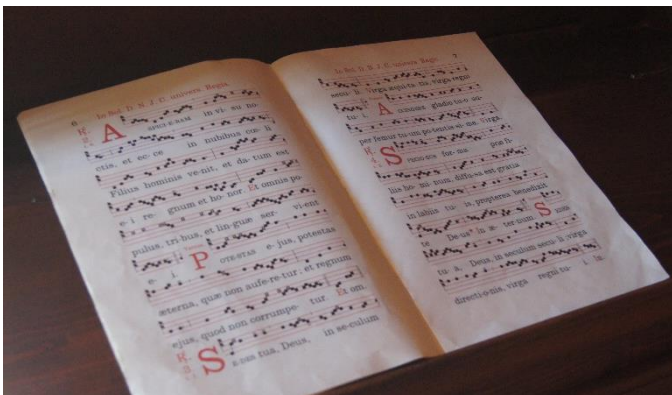 6
In Sol. D. N. J. C. universa Regis
A
SPICI-E-BAM in vi- su no-
ctis, et ec- ce in nubibus cœ- li
Filius hominis ve-nit, et da- tum est
e- i re- gnum et ho- nor Et omnis po-
pulus, tri-bus, et lin-guæ ser- vi-ent
e- i. P
OTE-STAS e- jus, potestas
æterna, quæ non aufe-re-tur, et regnum
ejus, quod non corrumpe- tur. Et om.
S
E-DES tua, Deus, in se-culum
7
In Sol. D. N. J. C. universa Regis
secu- li. Virga æqui-ta-tis, virga regni
tu- i. A
CCINGERE gladio tu-o su-
per femur tu-um po-tentis-si-me. Virga.
S
PECIO-SUS for- ma præ fi-
liis ho-mi-num, diffu-sa est gratia
in labiis tu- is, propterea benedixit
te Deus in æ- ter-num S
EDES
tu- a, Deus, in seculum secu- li: virga
directi-o-nis, virga regni tu- i.